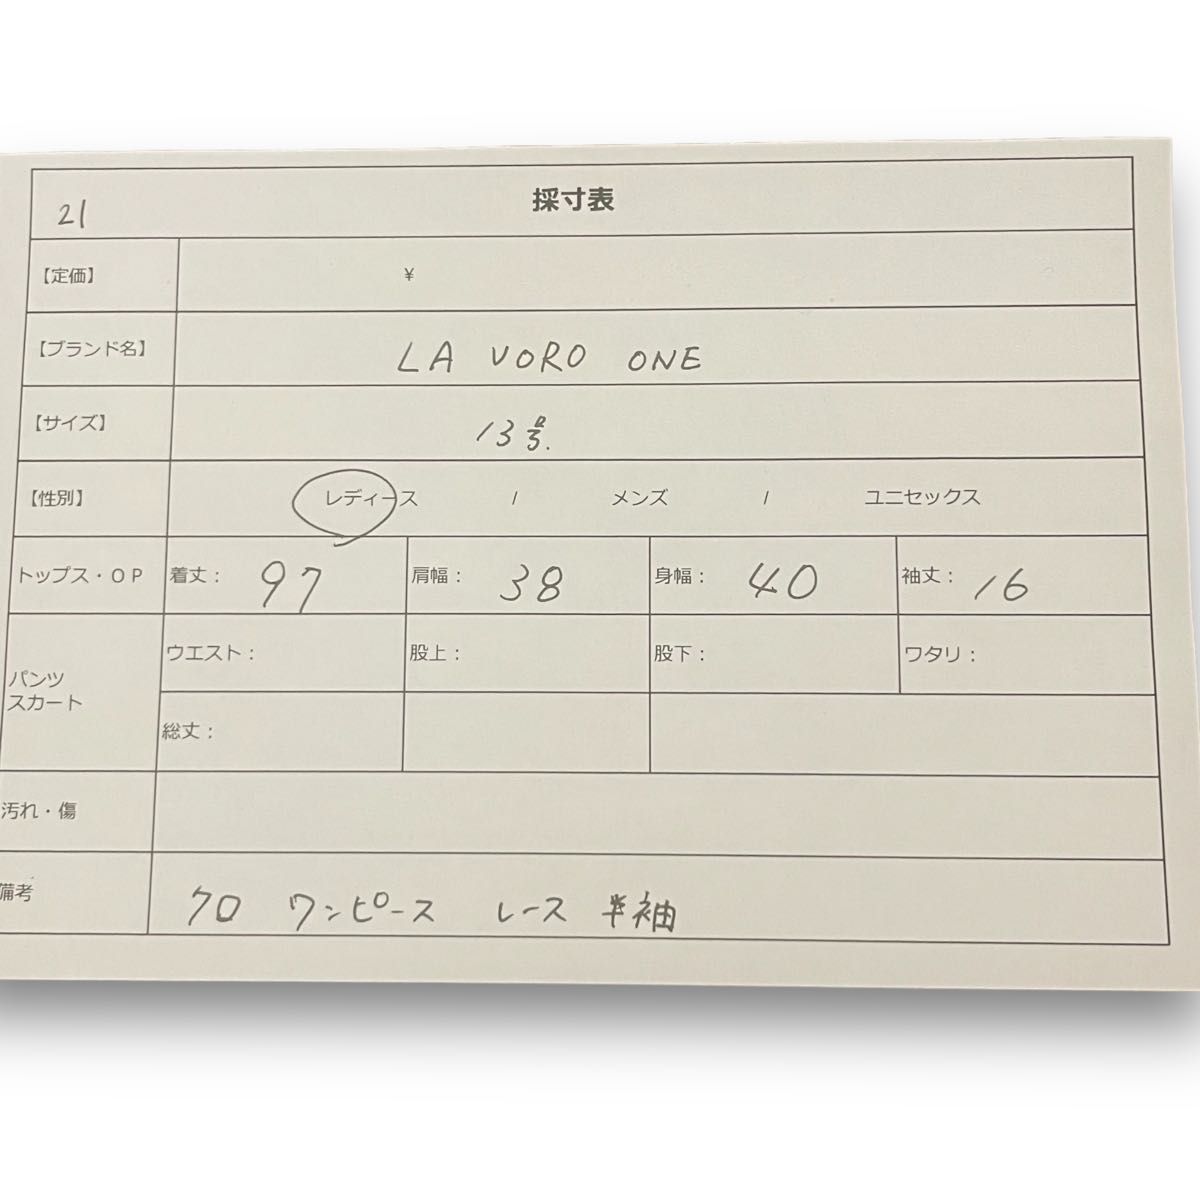 21 採寸表
【定価】 ¥
【ブランド名】 LA VORO ONE
【サイズ】 13号.
【性別】 レディース / メンズ / ユニセックス
トップス・OP 着丈: 97 肩幅: 38 身幅: 40 袖丈: 16
パンツ
スカート
ウエスト: 股上: 股下: ワタリ:
総丈:
汚れ・傷
備考 クロ ワンピース レース 半袖